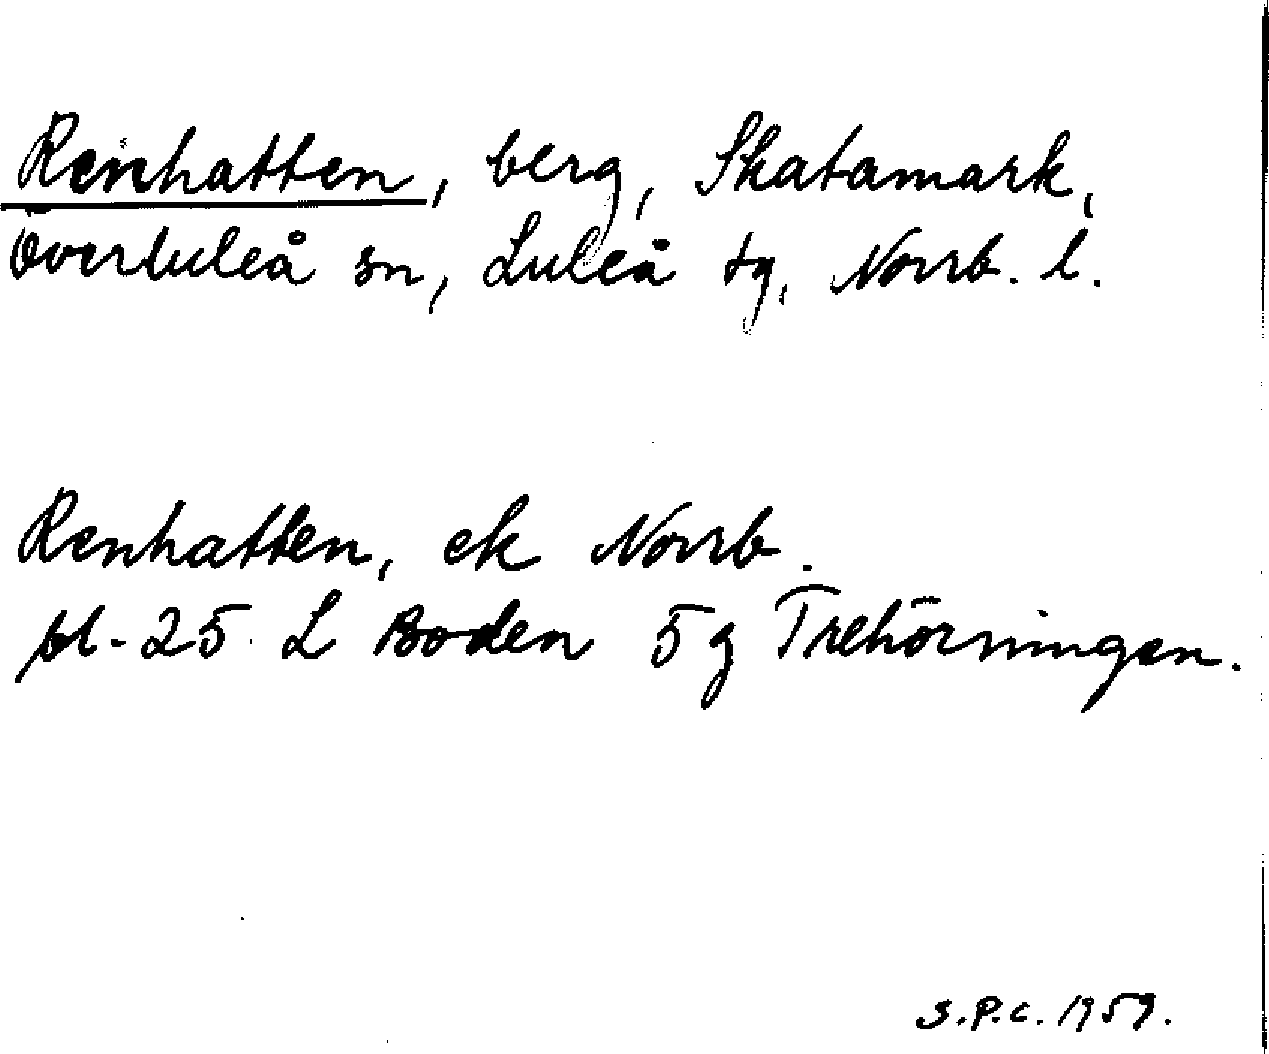 Renhatten, berg, Skatamark,
Överluleå sn, Luleå tg, Norrb. l.
Renhatten, ek Norrb.
bl. 25 L Boden 5 g Trehörningen.
S.P.C. 1959.